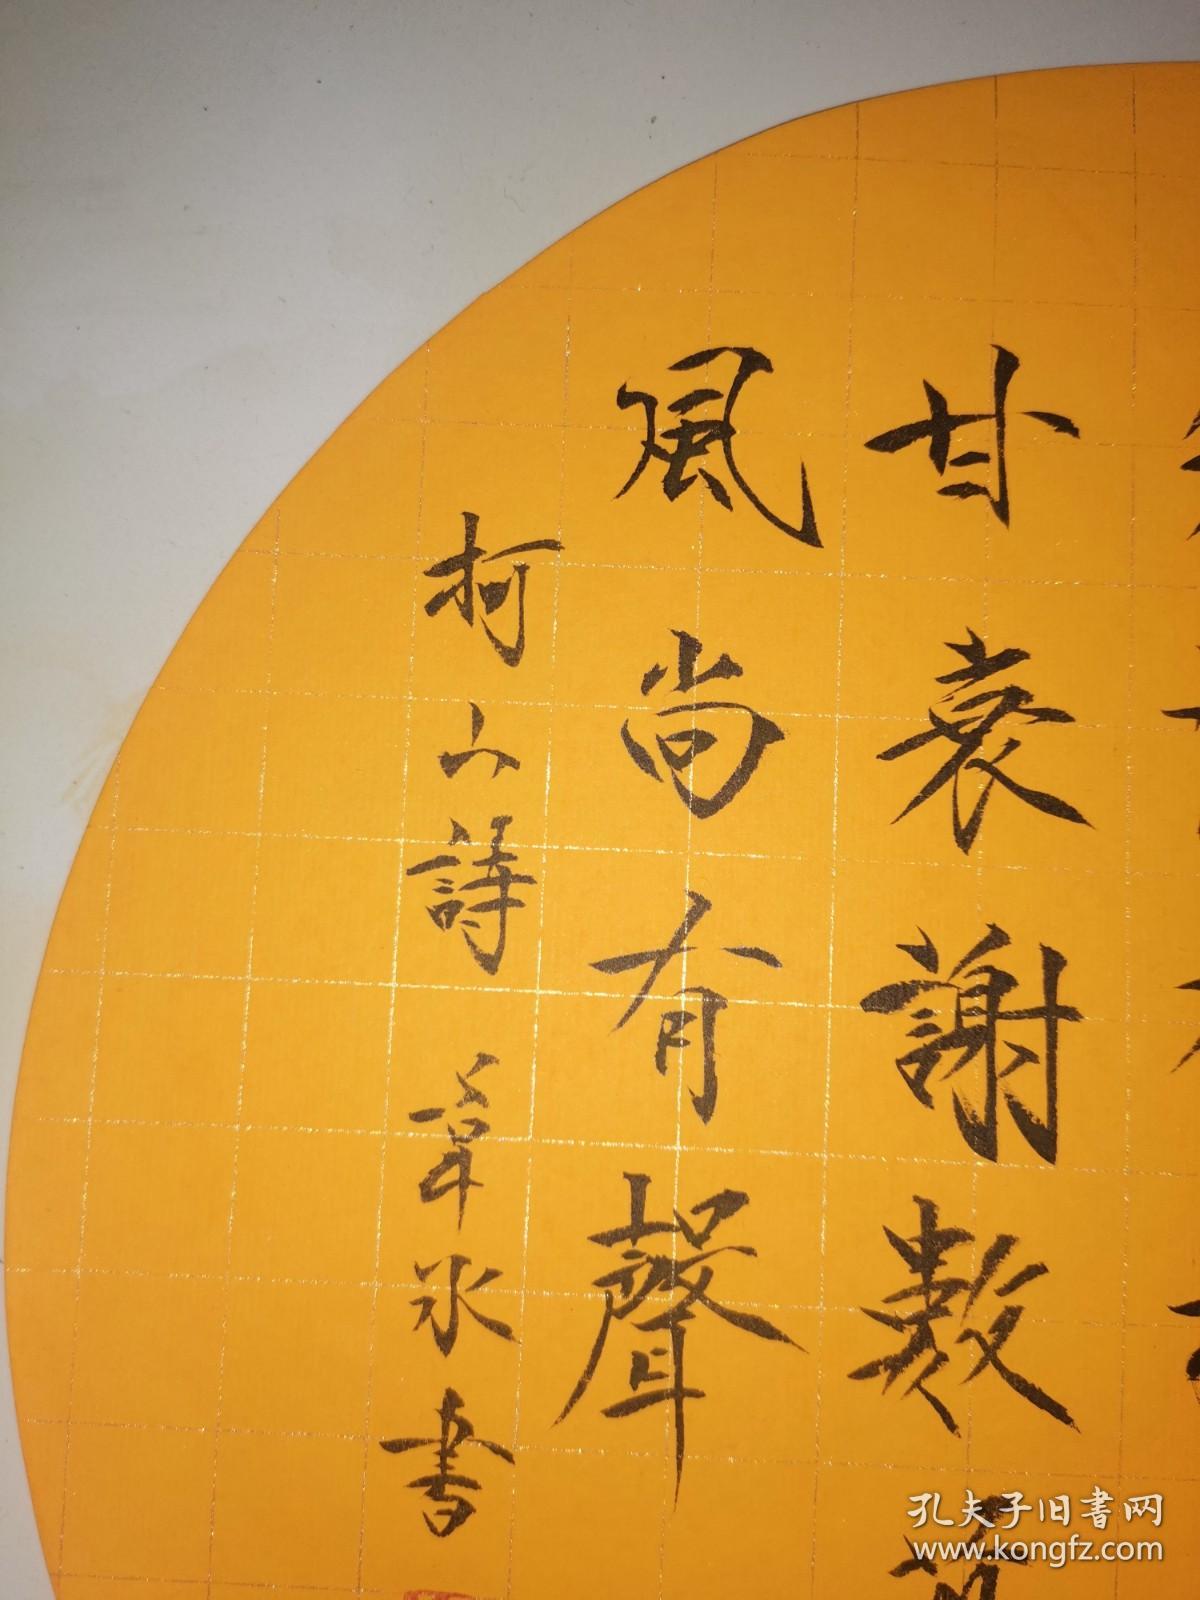 甘衰謝數
風尚有聲
柯山詩 葦冰書
孔夫子旧书网
www.kongfz.com